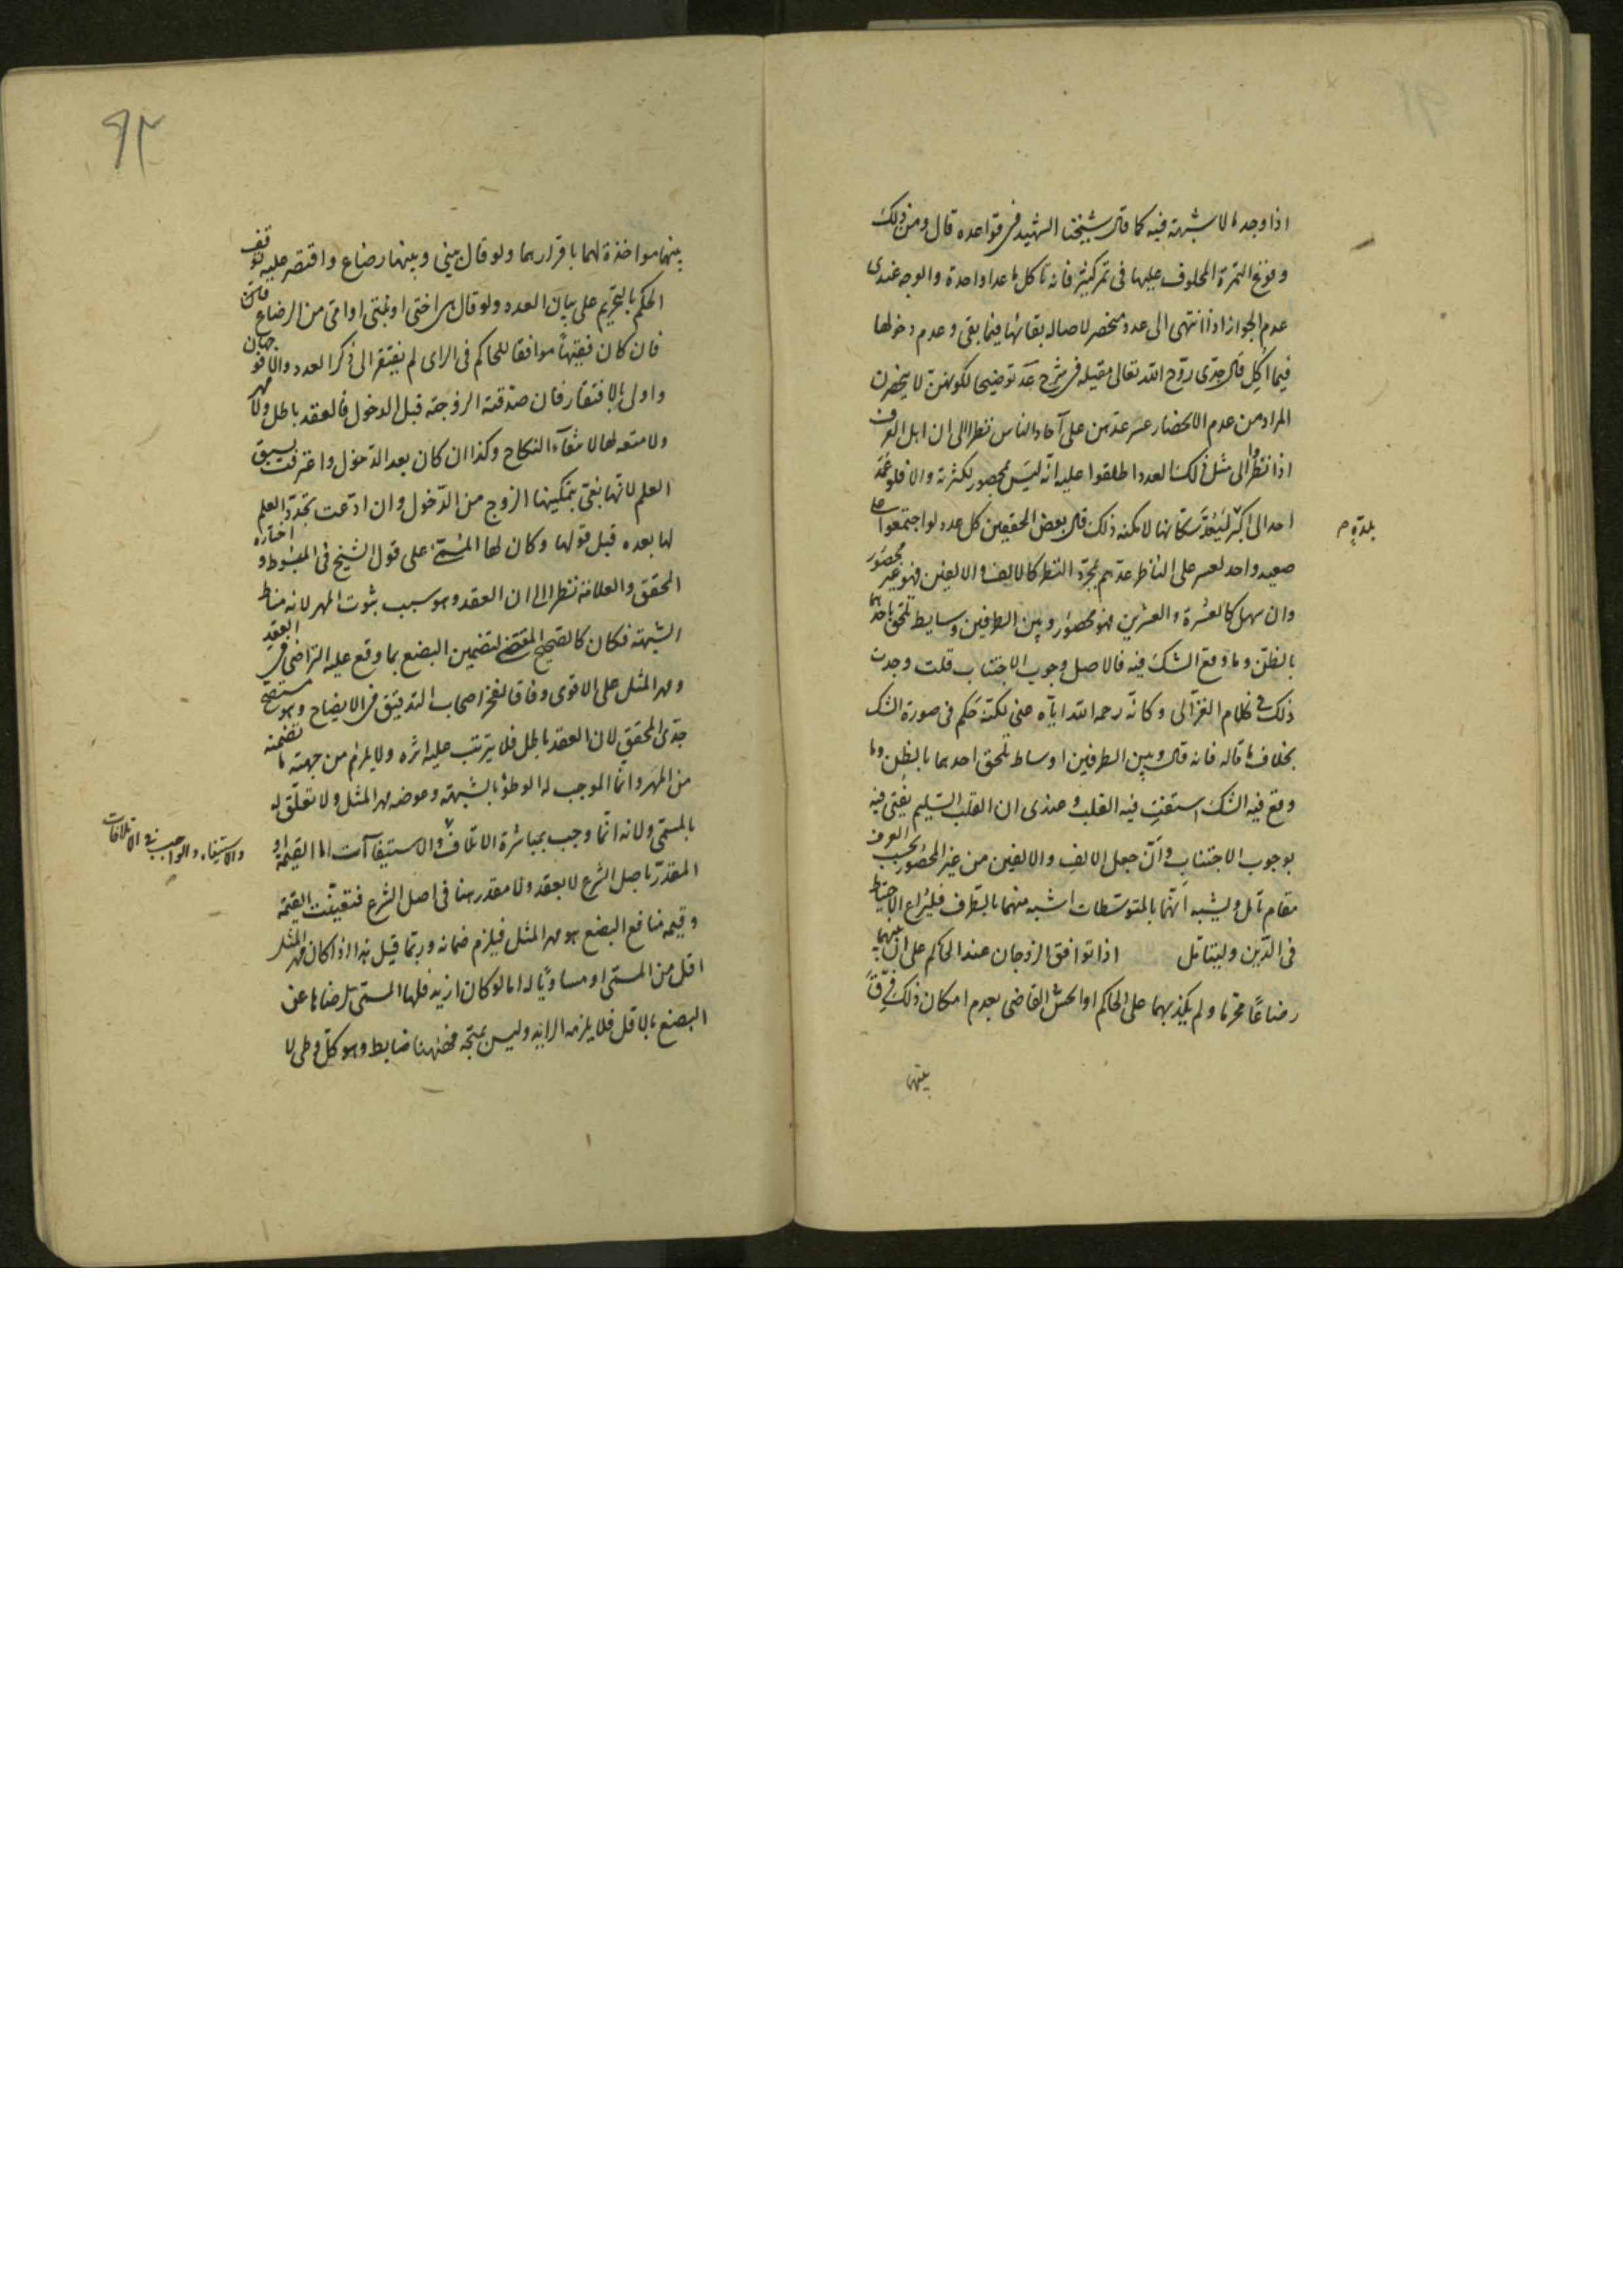 اذا وجد ما لا شبهة فيه كما قال شيخنا الشهيد في قواعده قال ومن ذلك
وقوع التمرة المحلوف عليها في تمر كثير فانه تأكل ما عدا واحدة والوجه عندي
عدم الجواز اذا انتهى الى عدد منحصر لاصاله بقائها فيما بقي وعدم دخولها
فيما اكل قال جدّي روّح الله تعالى مقيله في شرح عد توضيحا لكونهن لا ينحصرن
المراد من عدم الانحصار عسر عدّهن على آحاد الناس نظرا الى ان اهل العرف
اذا نظروا الى مثل ذلك العدد اطلقوا عليه انّه ليس بمحصور لكثرته والا فلو عمد
احد الى اكبر بلدة ليعدّ سكّانها لامكنه ذلك قال بعض المحققين كل عدد لو اجتمعوا على
صعيد واحد لعسر على الناظر عدّهم بمجرّد النظر كالالف والالفين فهو غير محصور
وان سهل كالعشرة والعشرين فهو محصور وبين الطرفين وسايط تلحق باحدهما
بالظنّ وما وقع الشك فيه فالاصل وجوب الاجتناب قلت وجدت
ذلك في كلام الغزّالي وكانّه رحمه الله ايّاه عنى لكنّه حكم في صورة الشك
بخلاف ما قاله فانه قال وبين الطرفين اوساط تلحق احدهما بالظن وما
وقع فيه الشك استفت فيه القلب وعندي ان القلب السليم يفتي فيه
بوجوب الاجتناب وانّ جعل الالف والالفين من غير المحصور بحسب العرف
مقام تأمل ويشبه انّهما بالمتوسّطات اشبه منهما بالطرف فليراع الاحتياط
في الدّين وليتامّل اذا توافق الزوجان عند الحاكم على ان بينهما
رضاعًا محرّما ولم يكذبهما على الحاكم او الحسّ القاضي بعدم امكان ذلك فرّق
بينهما
بلدة م
٩٢
بينهما مواخذة لهما باقرارهما ولو قال بيني وبينها رضاع واقتصر عليه توقف
الحكم بالتحريم على بيان العدد ولو قال هي اختي او بنتي او امّي من الرضاع
فان كان فقيهًا موافقا للحاكم في الراي لم يفتقر الى ذكر العدد والا
واولى بالافتقار فان صدّقته الزوجة قبل الدخول فالعقد باطل ولا مهر
ولا متعه لها لانتفآء النكاح وكذا ان كان بعد الدّخول واعترفت بسبق
العلم لانها بغي بتمكينها الزوج من الدّخول وان ادّعت تجدّد العلم
لها بعده قبل قولها وكان لها المسمّى على قول الشيخ في المبسوط واختاره
المحقق والعلامة نظرا الى ان العقد وهو سبب ثبوت المهر لانه مناط
الشبهة فكان كالصّحيح المقتضي لتضمين البضع بما وقع عليه التراضي في العقد
ومهر المثل على الاقوى وفاقا لفخر اصحاب التدقيق في الايضاح وهو
جدّى المحقق لان العقد باطل فلا يترتب عليه اثره ولا يلزم من جهته ما تضمنه
من المهر وانّما الموجب له الوطؤ بالشبهة وعوضه مهر المثل ولا تعلّق له
بالمسمّى ولانه انّما وجب بمباشرة الاتلاف والاستيفاآت اما القيمة او
المقدّر باصل الشرع لا بعقد ولا مقدر هنا في اصل الشرع فتعيّنت القيمة
وقيمة منافع البضع هو مهر المثل فيلزم ضمانه وربّما قيل بهذا اذا كان مهر المثل
اقل من المسمّى او مساويًا له اما لو كان ازيد فلها المسمّى لرضاها عن
البضع بالاقل فلا يلزمه الزايد وليس بمتجه فههنا ضابط وهو كل وطي لا
والاستيفاء والواجب في الاتلافات